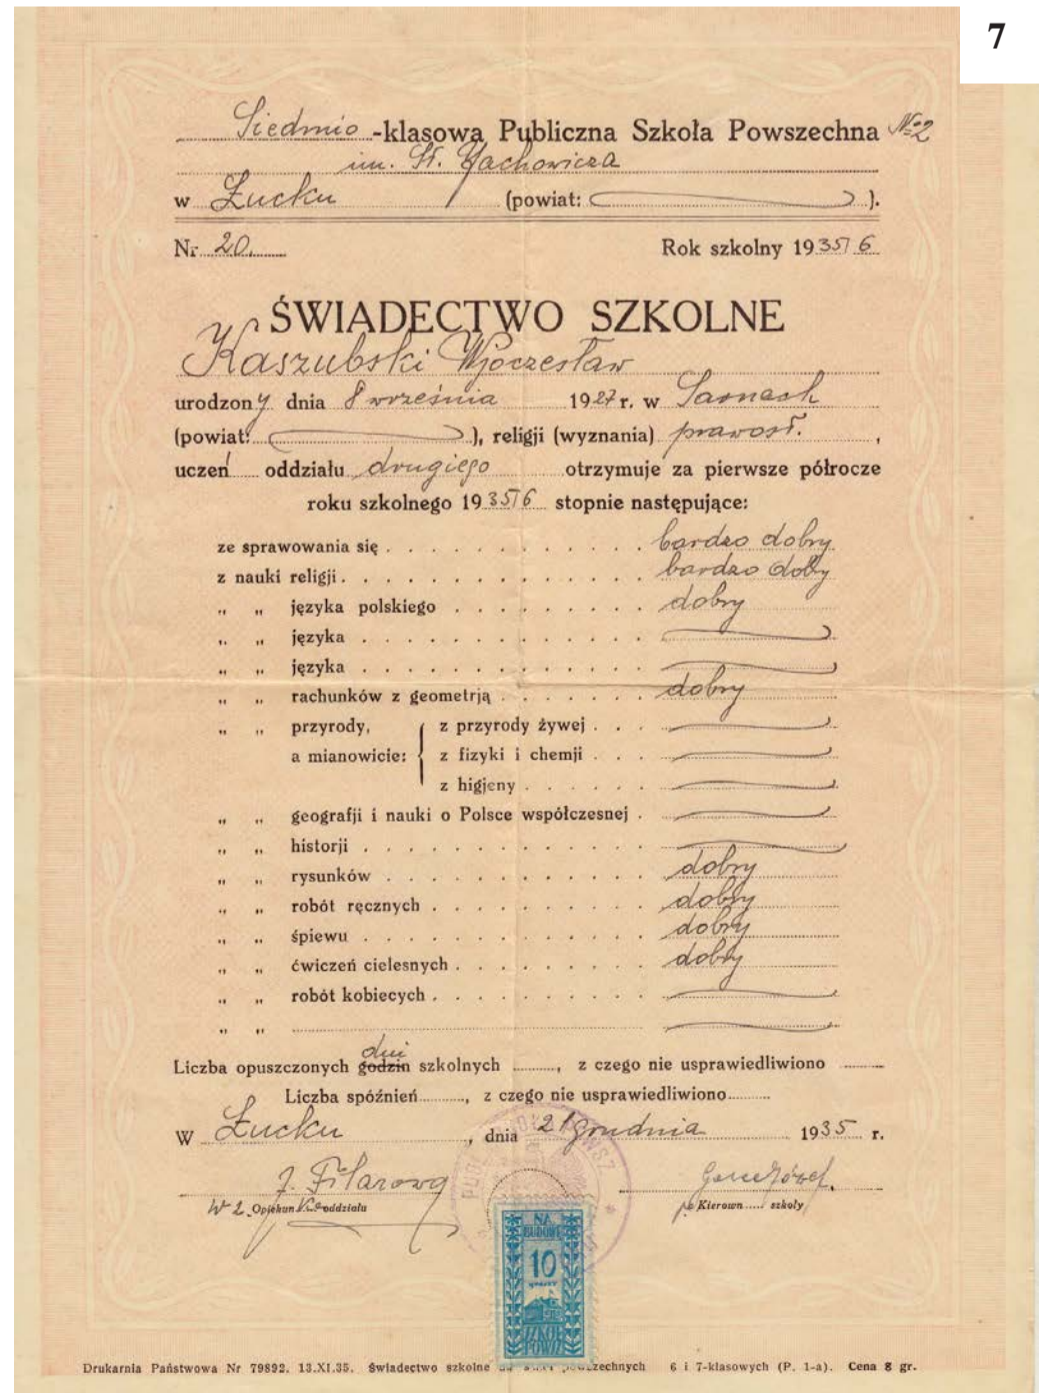 7
Siedmio-klasowa Publiczna Szkoła Powszechna № 2
im. St. Jachowicza
w Łucku (powiat: ).
Nr 20. Rok szkolny 1935/6
ŚWIADECTWO SZKOLNE
Kaszubski Wjaczesław
urodzony dnia 8 września 1927 r. w Sarnach
(powiat: ), religji (wyznania) prawosł. ,
uczeń oddziału drugiego otrzymuje za pierwsze półrocze
roku szkolnego 1935/6 stopnie następujące:
ze sprawowania się . . . . . . . . . . . . bardzo dobry
z nauki religji . . . . . . . . . . . . . bardzo dobry
„ „ języka polskiego . . . . . . . . . dobry
„ „ języka . . . . . . . . . . . . .
„ „ języka . . . . . . . . . . . . .
„ „ rachunków z geometrją . . . . . . . dobry
„ „ przyrody, z przyrody żywej . . .
a mianowicie: z fizyki i chemji . . .
z higjeny . . . . . .
„ „ geografji i nauki o Polsce współczesnej .
„ „ historji . . . . . . . . . . . . .
„ „ rysunków . . . . . . . . . . . . dobry
„ „ robót ręcznych . . . . . . . . . . dobry
„ „ śpiewu . . . . . . . . . . . . . dobry
„ „ ćwiczeń cielesnych . . . . . . . . . dobry
„ „ robót kobiecych . . . . . . . . . .
„ „
dni
Liczba opuszczonych godzin szkolnych , z czego nie usprawiedliwiono
Liczba spóźnień , z czego nie usprawiedliwiono
W Łucku , dnia 21 grudnia 1935 r.
J. Filarowa Józef.
w z. Opiekun oddziału Kierown szkoły
NA
BUDOWĘ
10
groszy
SZKÓŁ
POWSZ
Drukarnia Państwowa Nr 79892. 13.XI.35. Świadectwo szkolne 6 i 7-klasowych (P. 1-a). Cena 8 gr.